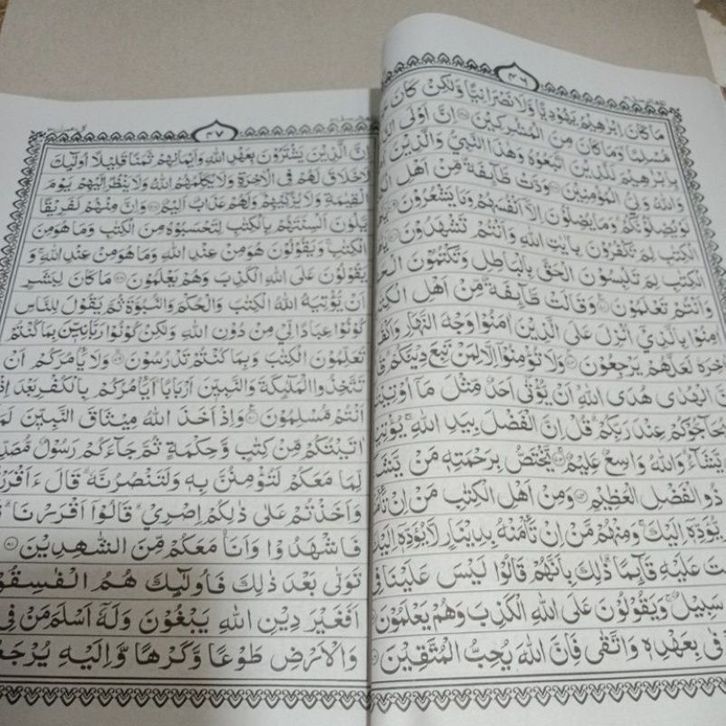 ٤٦
مَا كَانَ اِبْرٰهِيْمُ يَهُوْدِيًّا وَّلَا نَصْرَانِيًّا وَّلٰكِنْ كَانَ
مُّسْلِمًا وَمَا كَانَ مِنَ الْمُشْرِكِيْنَ اِنَّ اَوْلَى
بِاِبْرٰهِيْمَ لَلَّذِيْنَ اتَّبَعُوْهُ وَهٰذَا النَّبِيُّ وَالَّذِيْنَ
وَاللّٰهُ وَلِيُّ الْمُؤْمِنِيْنَ وَدَّتْ طَّآئِفَةٌ مِّنْ اَهْلِ
لَوْ يُضِلُّوْنَكُمْ وَمَا يُضِلُّوْنَ اِلَّآ اَنْفُسَهُمْ وَمَا يَشْعُرُوْنَ
الْكِتٰبِ لِمَ تَكْفُرُوْنَ بِاٰيٰتِ اللّٰهِ وَاَنْتُمْ تَشْهَدُوْنَ
الْكِتٰبِ لِمَ تَلْبِسُوْنَ الْحَقَّ بِالْبَاطِلِ وَتَكْتُمُوْنَ
وَاَنْتُمْ تَعْلَمُوْنَ وَقَالَتْ طَّآئِفَةٌ مِّنْ اَهْلِ
اٰمِنُوْا بِالَّذِيْٓ اُنْزِلَ عَلَى الَّذِيْنَ اٰمَنُوْا وَجْهَ النَّهَارِ
اٰخِرَهٗ لَعَلَّهُمْ يَرْجِعُوْنَ وَلَا تُؤْمِنُوْٓا اِلَّا لِمَنْ تَبِعَ دِيْنَكُمْ
الْهُدٰى هُدَى اللّٰهِ اَنْ يُّؤْتٰٓى اَحَدٌ مِّثْلَ مَآ
يُحَآجُّوْكُمْ عِنْدَ رَبِّكُمْ قُلْ اِنَّ الْفَضْلَ بِيَدِ اللّٰهِ
يَّشَآءُ وَاللّٰهُ وَاسِعٌ عَلِيْمٌ يَّخْتَصُّ بِرَحْمَتِهٖ مَنْ
ذُو الْفَضْلِ الْعَظِيْمِ وَمِنْ اَهْلِ الْكِتٰبِ مَنْ اِنْ
يُّؤَدِّهٖٓ اِلَيْكَ وَمِنْهُمْ مَّنْ اِنْ تَأْمَنْهُ بِدِيْنَارٍ لَّا يُؤَدِّهٖٓ
عَلَيْهِ قَآئِمًا ذٰلِكَ بِاَنَّهُمْ قَالُوْا لَيْسَ عَلَيْنَا
سَبِيْلٌ وَيَقُوْلُوْنَ عَلَى اللّٰهِ الْكَذِبَ وَهُمْ يَعْلَمُوْنَ
بِعَهْدِهٖ وَاتَّقٰى فَاِنَّ اللّٰهَ يُحِبُّ الْمُتَّقِيْنَ
٤٧
اِنَّ الَّذِيْنَ يَشْتَرُوْنَ بِعَهْدِ اللّٰهِ وَاَيْمَانِهِمْ ثَمَنًا قَلِيْلًا اُولٰٓئِكَ
لَا خَلَاقَ لَهُمْ فِى الْاٰخِرَةِ وَلَا يُكَلِّمُهُمُ اللّٰهُ وَلَا يَنْظُرُ اِلَيْهِمْ يَوْمَ
الْقِيٰمَةِ وَلَا يُزَكِّيْهِمْ وَلَهُمْ عَذَابٌ اَلِيْمٌ وَاِنَّ مِنْهُمْ لَفَرِيْقًا
يَّلْوٗنَ اَلْسِنَتَهُمْ بِالْكِتٰبِ لِتَحْسَبُوْهُ مِنَ الْكِتٰبِ وَمَا هُوَ مِنَ
الْكِتٰبِ وَيَقُوْلُوْنَ هُوَ مِنْ عِنْدِ اللّٰهِ وَمَا هُوَ مِنْ عِنْدِ اللّٰهِ وَ
يَقُوْلُوْنَ عَلَى اللّٰهِ الْكَذِبَ وَهُمْ يَعْلَمُوْنَ مَا كَانَ لِبَشَرٍ
اَنْ يُّؤْتِيَهُ اللّٰهُ الْكِتٰبَ وَالْحُكْمَ وَالنُّبُوَّةَ ثُمَّ يَقُوْلَ لِلنَّاسِ
كُوْنُوْا عِبَادًا لِّيْ مِنْ دُوْنِ اللّٰهِ وَلٰكِنْ كُوْنُوْا رَبَّانِيّٖنَ بِمَا كُنْتُمْ
تُعَلِّمُوْنَ الْكِتٰبَ وَبِمَا كُنْتُمْ تَدْرُسُوْنَ وَلَا يَأْمُرَكُمْ اَنْ
تَتَّخِذُوا الْمَلٰٓئِكَةَ وَالنَّبِيّٖنَ اَرْبَابًا اَيَأْمُرُكُمْ بِالْكُفْرِ بَعْدَ اِذْ
اَنْتُمْ مُّسْلِمُوْنَ وَاِذْ اَخَذَ اللّٰهُ مِيْثَاقَ النَّبِيّٖنَ لَمَآ
اٰتَيْتُكُمْ مِّنْ كِتٰبٍ وَّحِكْمَةٍ ثُمَّ جَآءَكُمْ رَسُوْلٌ
لِّمَا مَعَكُمْ لَتُؤْمِنُنَّ بِهٖ وَلَتَنْصُرُنَّهٗ قَالَ
وَاَخَذْتُمْ عَلٰى ذٰلِكُمْ اِصْرِيْ قَالُوْٓا اَقْرَرْنَا
فَاشْهَدُوْا وَاَنَا۠ مَعَكُمْ مِّنَ الشّٰهِدِيْنَ
تَوَلّٰى بَعْدَ ذٰلِكَ فَاُولٰٓئِكَ هُمُ
اَفَغَيْرَ دِيْنِ اللّٰهِ يَبْغُوْنَ وَلَهٗٓ اَسْلَمَ مَنْ فِى
وَالْاَرْضِ طَوْعًا وَّكَرْهًا وَّاِلَيْهِ